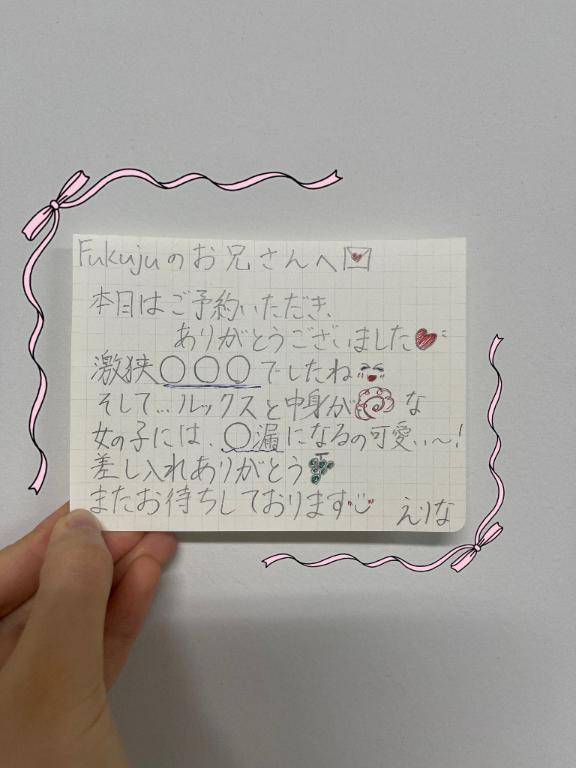 Fukujuのお兄さんへ
本日はご予約いただき、
ありがとうございました
激狭〇〇〇でしたね
そして…ルックスと中身が な
女の子には、〇漏になるの可愛い〜!
差し入れありがとう
またお待ちしております
えりな